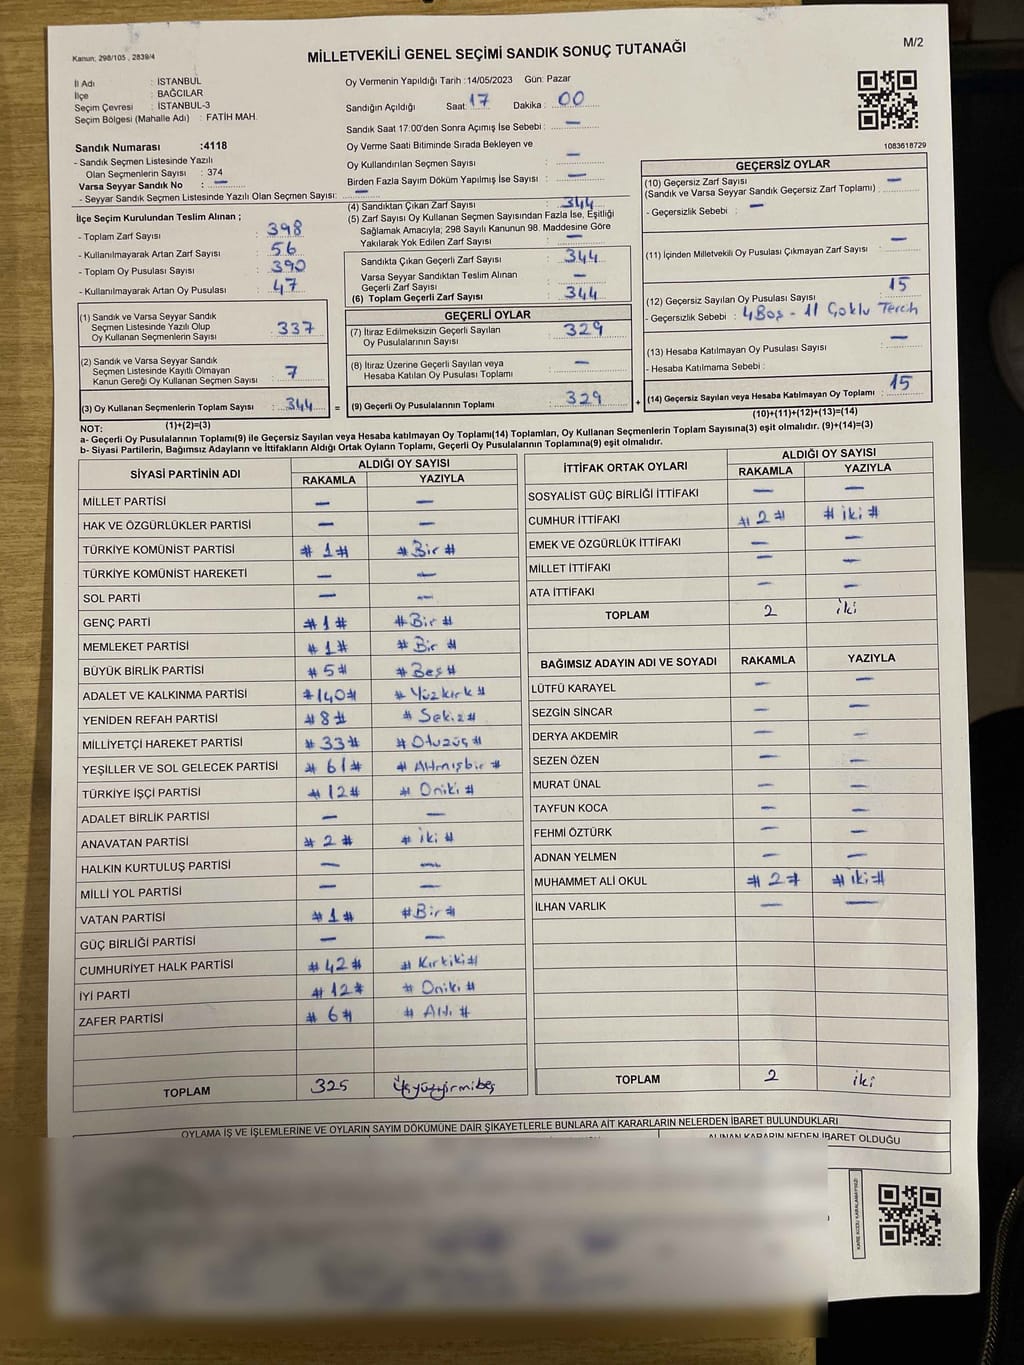 Kanun; 298/105 , 2839/4
MİLLETVEKİLİ GENEL SEÇİMİ SANDIK SONUÇ TUTANAĞI
M/2
İl Adı : İSTANBUL
İlçe : BAĞCILAR
Seçim Çevresi : İSTANBUL-3
Seçim Bölgesi (Mahalle Adı) : FATİH MAH.
Sandık Numarası :4118
- Sandık Seçmen Listesinde Yazılı
Olan Seçmenlerin Sayısı : 374
Varsa Seyyar Sandık No : —
- Seyyar Sandık Seçmen Listesinde Yazılı Olan Seçmen Sayısı: —
Oy Vermenin Yapıldığı Tarih :14/05/2023 Gün: Pazar
Sandığın Açıldığı Saat 17 Dakika : 00
Sandık Saat 17:00'den Sonra Açımış İse Sebebi : —
Oy Verme Saati Bitiminde Sırada Bekleyen ve
Oy Kullandırılan Seçmen Sayısı : —
Birden Fazla Sayım Döküm Yapılmış İse Sayısı : —
1083618729
İlçe Seçim Kurulundan Teslim Alınan ;
- Toplam Zarf Sayısı : 398
- Kullanılmayarak Artan Zarf Sayısı : 56
- Toplam Oy Pusulası Sayısı : 390
- Kullanılmayarak Artan Oy Pusulası : 47
(1) Sandık ve Varsa Seyyar Sandık
Seçmen Listesinde Yazılı Olup
Oy Kullanan Seçmenlerin Sayısı : 337
(2) Sandık ve Varsa Seyyar Sandık
Seçmen Listesinde Kayıtlı Olmayan
Kanun Gereği Oy Kullanan Seçmen Sayısı : 7
(3) Oy Kullanan Seçmenlerin Toplam Sayısı : 344 =
(1)+(2)=(3)
(4) Sandıktan Çıkan Zarf Sayısı : 344
(5) Zarf Sayısı Oy Kullanan Seçmen Sayısından Fazla İse, Eşitliği
Sağlamak Amacıyla; 298 Sayılı Kanunun 98. Maddesine Göre
Yakılarak Yok Edilen Zarf Sayısı : —
Sandıkta Çıkan Geçerli Zarf Sayısı : 344
Varsa Seyyar Sandıktan Teslim Alınan
Geçerli Zarf Sayısı : —
(6) Toplam Geçerli Zarf Sayısı : 344
GEÇERLİ OYLAR
(7) İtiraz Edilmeksizin Geçerli Sayılan
Oy Pusulalarının Sayısı : 329
(8) İtiraz Üzerine Geçerli Sayılan veya
Hesaba Katılan Oy Pusulası Toplamı : —
(9) Geçerli Oy Pusulalarının Toplamı : 329 +
GEÇERSİZ OYLAR
(10) Geçersiz Zarf Sayısı
(Sandık ve Varsa Seyyar Sandık Geçersiz Zarf Toplamı) : —
- Geçersizlik Sebebi : —
(11) İçinden Milletvekili Oy Pusulası Çıkmayan Zarf Sayısı : —
(12) Geçersiz Sayılan Oy Pusulası Sayısı : 15
- Geçersizlik Sebebi : 4 Boş - 11 Çoklu Tercih
(13) Hesaba Katılmayan Oy Pusulası Sayısı : —
- Hesaba Katılmama Sebebi :
(14) Geçersiz Sayılan veya Hesaba Katılmayan Oy Toplamı : 15
(10)+(11)+(12)+(13)=(14)
NOT:
a- Geçerli Oy Pusulalarının Toplamı(9) ile Geçersiz Sayılan veya Hesaba katılmayan Oy Toplamı(14) Toplamları, Oy Kullanan Seçmenlerin Toplam Sayısına(3) eşit olmalıdır. (9)+(14)=(3)
b- Siyasi Partilerin, Bağımsız Adayların ve İttifakların Aldığı Ortak Oyların Toplamı, Geçerli Oy Pusulalarının Toplamına(9) eşit olmalıdır.
SİYASİ PARTİNİN ADI ALDIĞI OY SAYISI
RAKAMLA YAZIYLA
MİLLET PARTİSİ — —
HAK VE ÖZGÜRLÜKLER PARTİSİ — —
TÜRKİYE KOMÜNİST PARTİSİ # 1 # # Bir #
TÜRKİYE KOMÜNİST HAREKETİ — —
SOL PARTİ — —
GENÇ PARTİ # 1 # # Bir #
MEMLEKET PARTİSİ # 1 # # Bir #
BÜYÜK BİRLİK PARTİSİ # 5 # # Beş #
ADALET VE KALKINMA PARTİSİ # 140 # # Yüzkırk #
YENİDEN REFAH PARTİSİ # 8 # # Sekiz #
MİLLİYETÇİ HAREKET PARTİSİ # 33 # # Otuzüç #
YEŞİLLER VE SOL GELECEK PARTİSİ # 61 # # Altmışbir #
TÜRKİYE İŞÇİ PARTİSİ # 12 # # Oniki #
ADALET BİRLİK PARTİSİ — —
ANAVATAN PARTİSİ # 2 # # İki #
HALKIN KURTULUŞ PARTİSİ — —
MİLLİ YOL PARTİSİ — —
VATAN PARTİSİ # 1 # # Bir #
GÜÇ BİRLİĞİ PARTİSİ — —
CUMHURİYET HALK PARTİSİ # 42 # # Kırkiki #
İYİ PARTİ # 12 # # Oniki #
ZAFER PARTİSİ # 6 # # Altı #
TOPLAM 325 Üçyüzyirmibeş
İTTİFAK ORTAK OYLARI ALDIĞI OY SAYISI
RAKAMLA YAZIYLA
SOSYALİST GÜÇ BİRLİĞİ İTTİFAKI — —
CUMHUR İTTİFAKI # 2 # # iki #
EMEK VE ÖZGÜRLÜK İTTİFAKI — —
MİLLET İTTİFAKI — —
ATA İTTİFAKI — —
TOPLAM 2 iki
BAĞIMSIZ ADAYIN ADI VE SOYADI RAKAMLA YAZIYLA
LÜTFÜ KARAYEL — —
SEZGİN SİNCAR — —
DERYA AKDEMİR — —
SEZEN ÖZEN — —
MURAT ÜNAL — —
TAYFUN KOCA — —
FEHMİ ÖZTÜRK — —
ADNAN YELMEN — —
MUHAMMET ALİ OKUL # 2 # # iki #
İLHAN VARLIK — —
TOPLAM 2 iki
OYLAMA İŞ VE İŞLEMLERİNE VE OYLARIN SAYIM DÖKÜMÜNE DAİR ŞİKAYETLERLE BUNLARA AİT KARARLARIN NELERDEN İBARET BULUNDUKLARI
ALINAN KARARIN NEDEN İBARET OLDUĞU